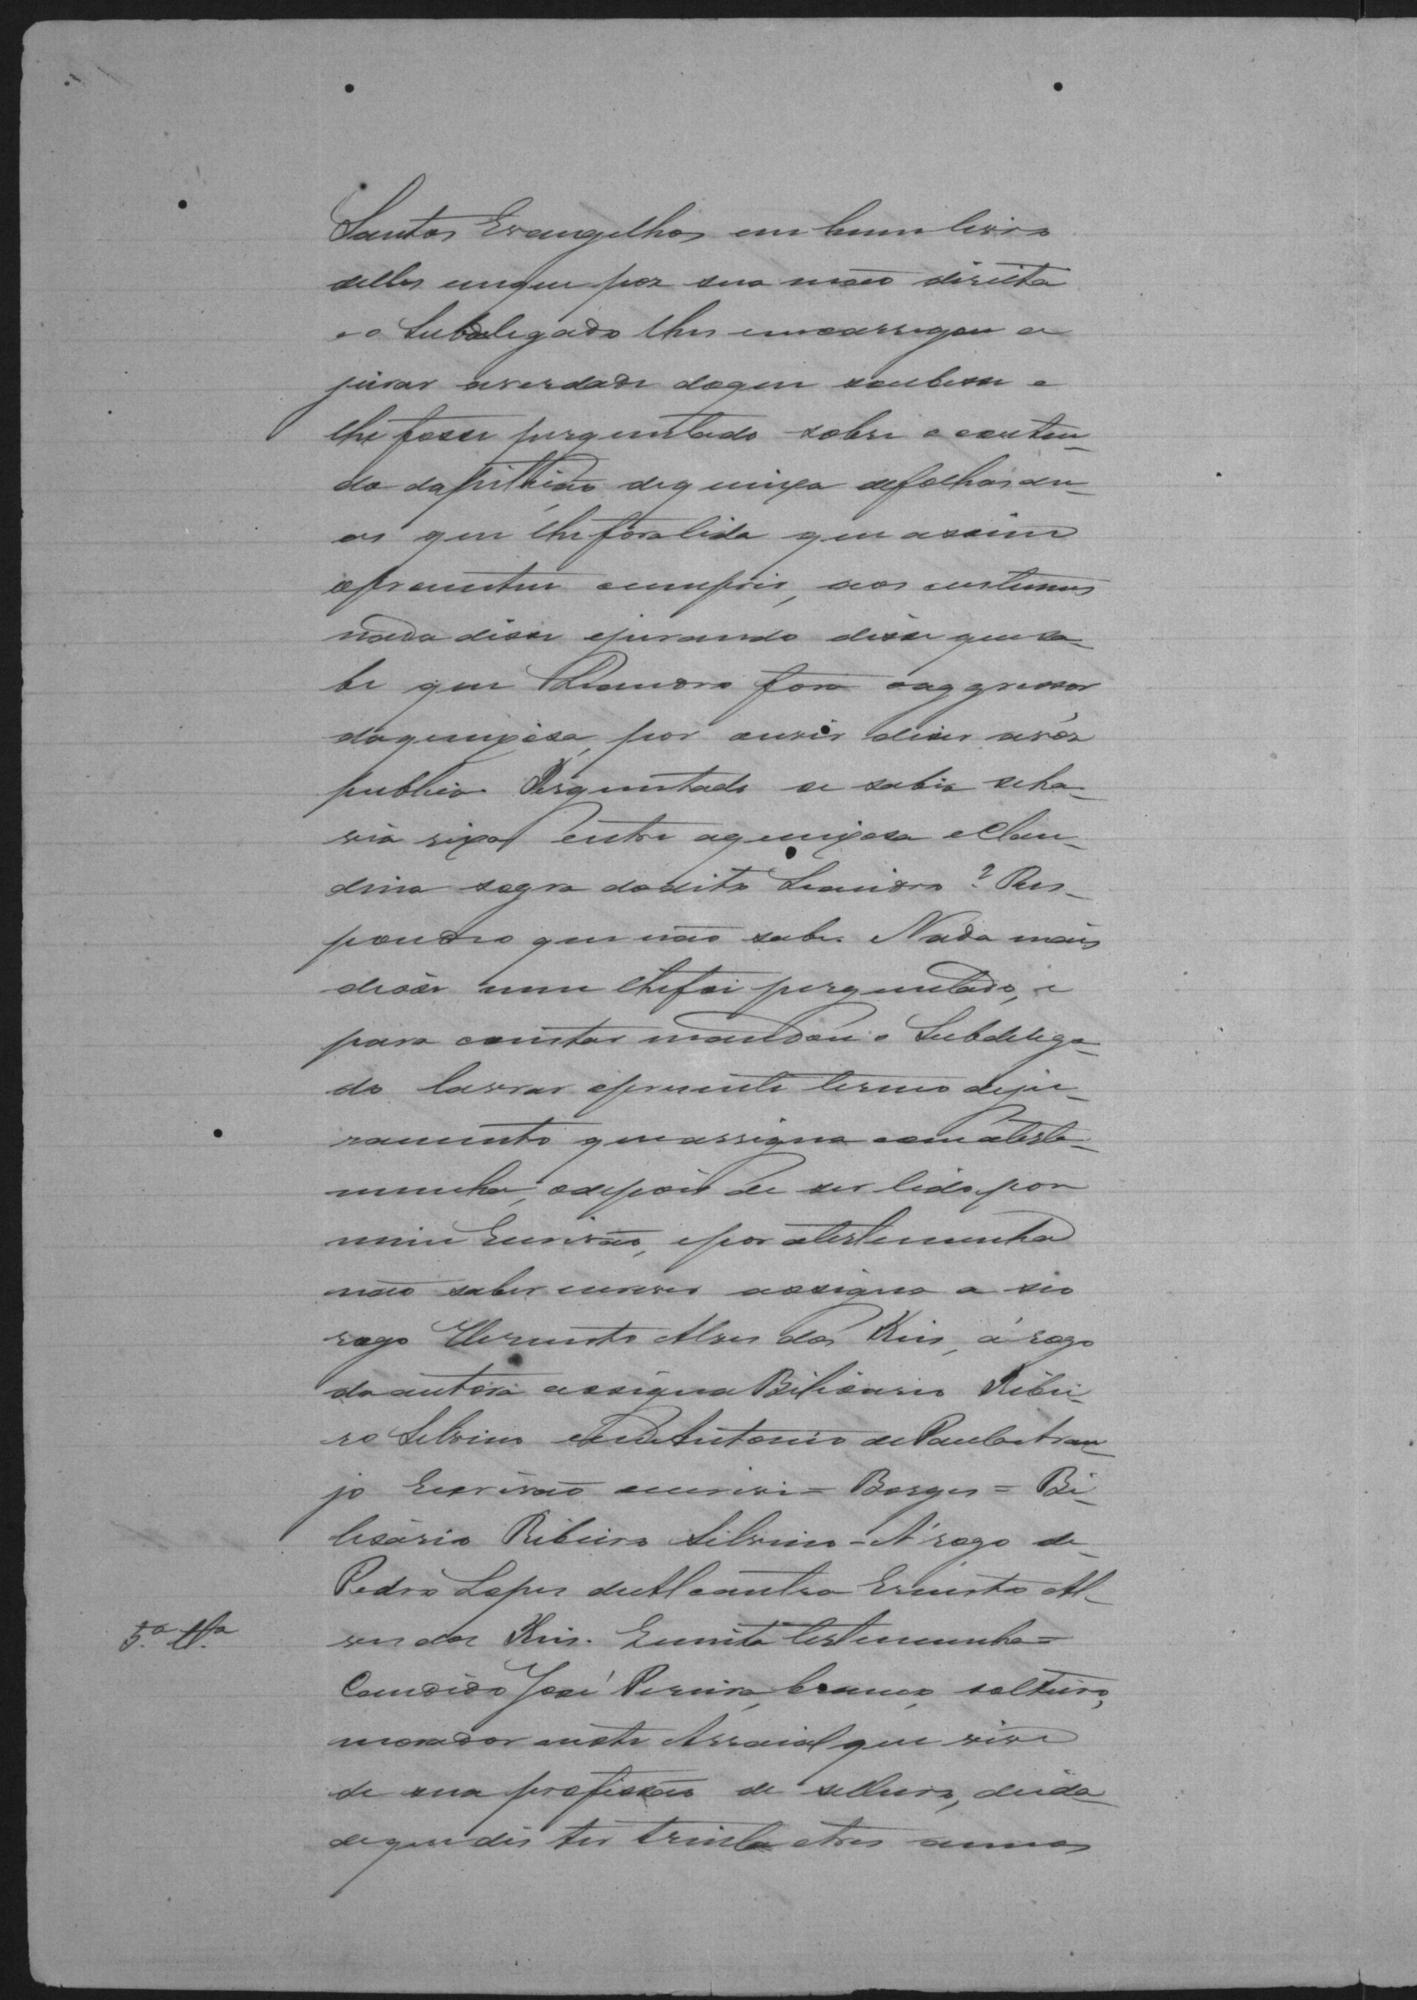 Santos Evangelhos em hum livro
delles emque poz sua mão direita
e o Subdelegado lhes encarregou a
jurar averdade doque soubesse e
lhe fosse perguntado sobre o conteu-
do dapitição dequeixa defolhas du-
as que lhe fora lida que assim
aprometeu cumprir, aos custumes
nada disse ejurando disse que sa-
be que Leandro fora oaggressor
daqueixosa, por ouvir diser avóz
publica. Perguntado se sabia seha-
via rixa entre aqueixosa e Clau-
dina sogra dodito Leandro? Res-
pondeo que não sabe. Nada mais
disse nem lhefoi perguntado, e
para constar mandou o Subdelega-
do lavrar opresente termo deju-
ramento queassigna com ateste-
munha, edepois de ser lido por
mim Escrivão, epor atestemunha
não saber escrever assigna a seo
rogo Ernesto Alves dos Reis, á rogo
da autora assigna Bilisario Ribei-
ro Silvino eu Antonio de Paula Arau-
jo Escrivão escrevi = Borges = Bi-
lisario Ribeiro Silvino - A' rogo de
Pedro Lopes de Alcantra Ernesto Al-
5.ª Tª
ves dos Reis. Quinta testemunha =
Candido José Pereira, branco, solteiro,
morador neste Arraial que vive
de sua profissão de selleiro, deida
de que dis ter trinta etres annos